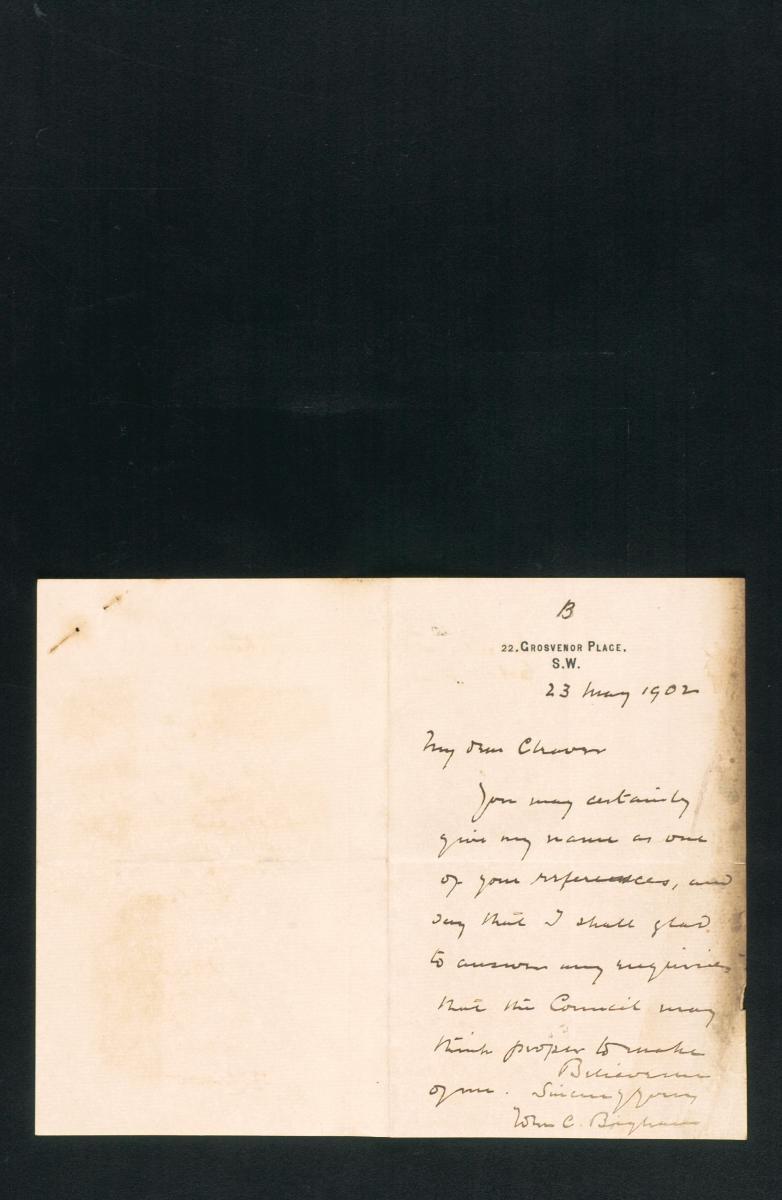 B
22, GROSVENOR PLACE,
S.W.
23 May 1902
My dear
You may certainly
give my name as one
of your references, and
say that I shall glad
to answer any enquiries
that the Council may
think proper to make
of me. Believe me
Sincerely yours
John C. Bigham